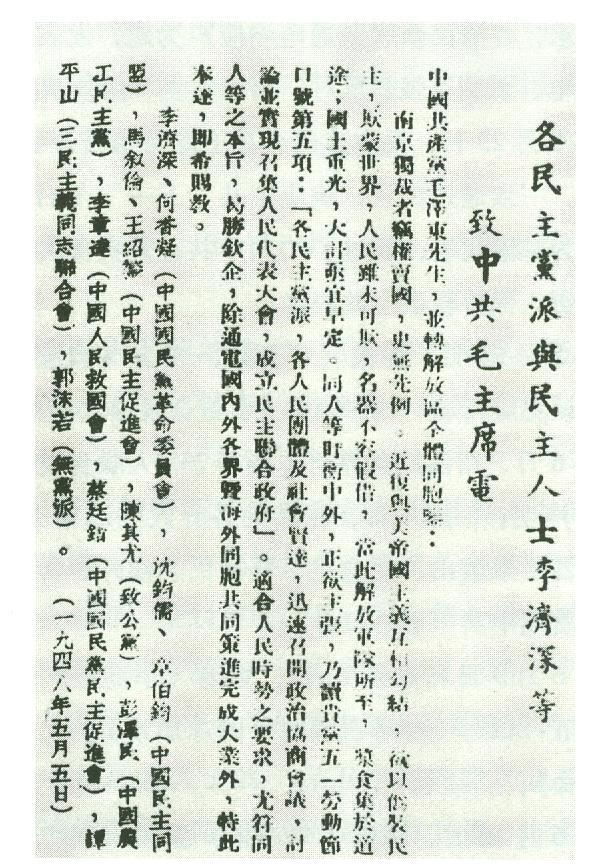 各民主黨派與民主人士李濟深等
致中共毛主席電
中國共產黨毛澤東先生，並轉解放區全體同胞鑒：
南京獨裁者竊權賣國，史無先例。近復與美帝國主義互相勾結，欲以僞裝民
主，欺蒙世界，人民雖未可欺，名器不容假借，當此解放軍隊所至，簞食集於道
途；國土重光，大計亟宜早定。同人等盱衡中外，正欲主張，乃讀貴黨五一勞動節
口號第五項：「各民主黨派，各人民團體及社會賢達，迅速召開政治協商會議，討
論並實現召集人民代表大會，成立民主聯合政府」。適合人民時勢之要求，尤符同
人等之本旨，曷勝欽企，除通電國內外各界暨海外同胞共同策進完成大業外，特此
奉達，即希賜教。
李濟深、何香凝（中國國民黨革命委員會），沈鈞儒、章伯鈞（中國民主同
盟），馬叙倫、王紹鏊（中國民主促進會），陳其尤（致公黨），彭澤民（中國農
工民主黨），李章達（中國人民救國會），蔡廷鍇（中國國民黨民主促進會），譚
平山（三民主義同志聯合會），郭沫若（無黨派）。　（一九四八年五月五日）